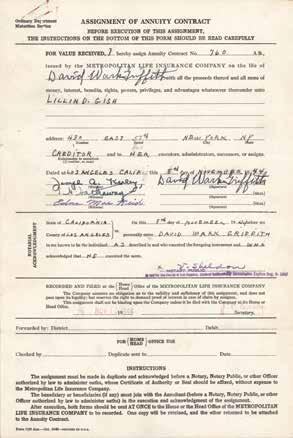 Ordinary Department
Maturities Section
ASSIGNMENT OF ANNUITY CONTRACT
BEFORE EXECUTION OF THIS ASSIGNMENT,
THE INSTRUCTIONS ON THE BOTTOM OF THIS FORM SHOULD BE READ CAREFULLY
FOR VALUE RECEIVED, I hereby assign Annuity Contract No. 760 A.B.,
issued by the METROPOLITAN LIFE INSURANCE COMPANY on the life of
David Wark Griffith and all the proceeds thereof and all sums of
money, interest, benefits, rights, powers, privileges, and advantages whatsoever thereunder unto
LILLIAN D. GISH
address: 430 EAST 57th NEW YORK NY
CREDITOR and to HER executors, administrators, successors, or assigns.
Dated at LOS ANGELES CALIF. this 8th day of NOVEMBER 1946
David Wark Griffith
(Signature)
(Signature)
(Signature)
NOTARIAL ACKNOWLEDGMENT
State of CALIFORNIA
County of LOS ANGELES
On this 8th day of NOVEMBER before me
personally came DAVID WARK GRIFFITH
to me known to be the individual AS described in and who executed the foregoing instrument and WHO
acknowledged that HE executed the same.
V. Sheldon
NOTARY PUBLIC
RECORDED AND FILED at the Home Head Office of the METROPOLITAN LIFE INSURANCE COMPANY
The Company assumes no obligation as to the validity and sufficiency of this assignment, and does not
pass upon its legality; but reserves the right to demand proof of interest in case of claim by assigns.
This assignment shall not be binding upon the Company unless it be filed with the Company at its Home or
Head Office.
Secretary.
Forwarded for: District Debit
FOR HOME HEAD OFFICE USE
Checked by Duplicate sent to Date
INSTRUCTIONS
The assignment must be made in duplicate and acknowledged before a Notary, Notary Public, or other Officer
authorized by law to administer oaths, whose Certificate of Authority or Seal should be affixed, without expense to
the Metropolitan Life Insurance Company.
The beneficiary or beneficiaries (if any) must join with the Annuitant (before a Notary, Notary Public, or other
Officer authorized by law to administer oaths) in the execution and acknowledgment of the assignment.
After execution, both forms should be SENT AT ONCE to the Home or the Head Office of the METROPOLITAN
LIFE INSURANCE COMPANY to be recorded. One copy will be retained, and the other returned to be attached
to the Annuity Contract.